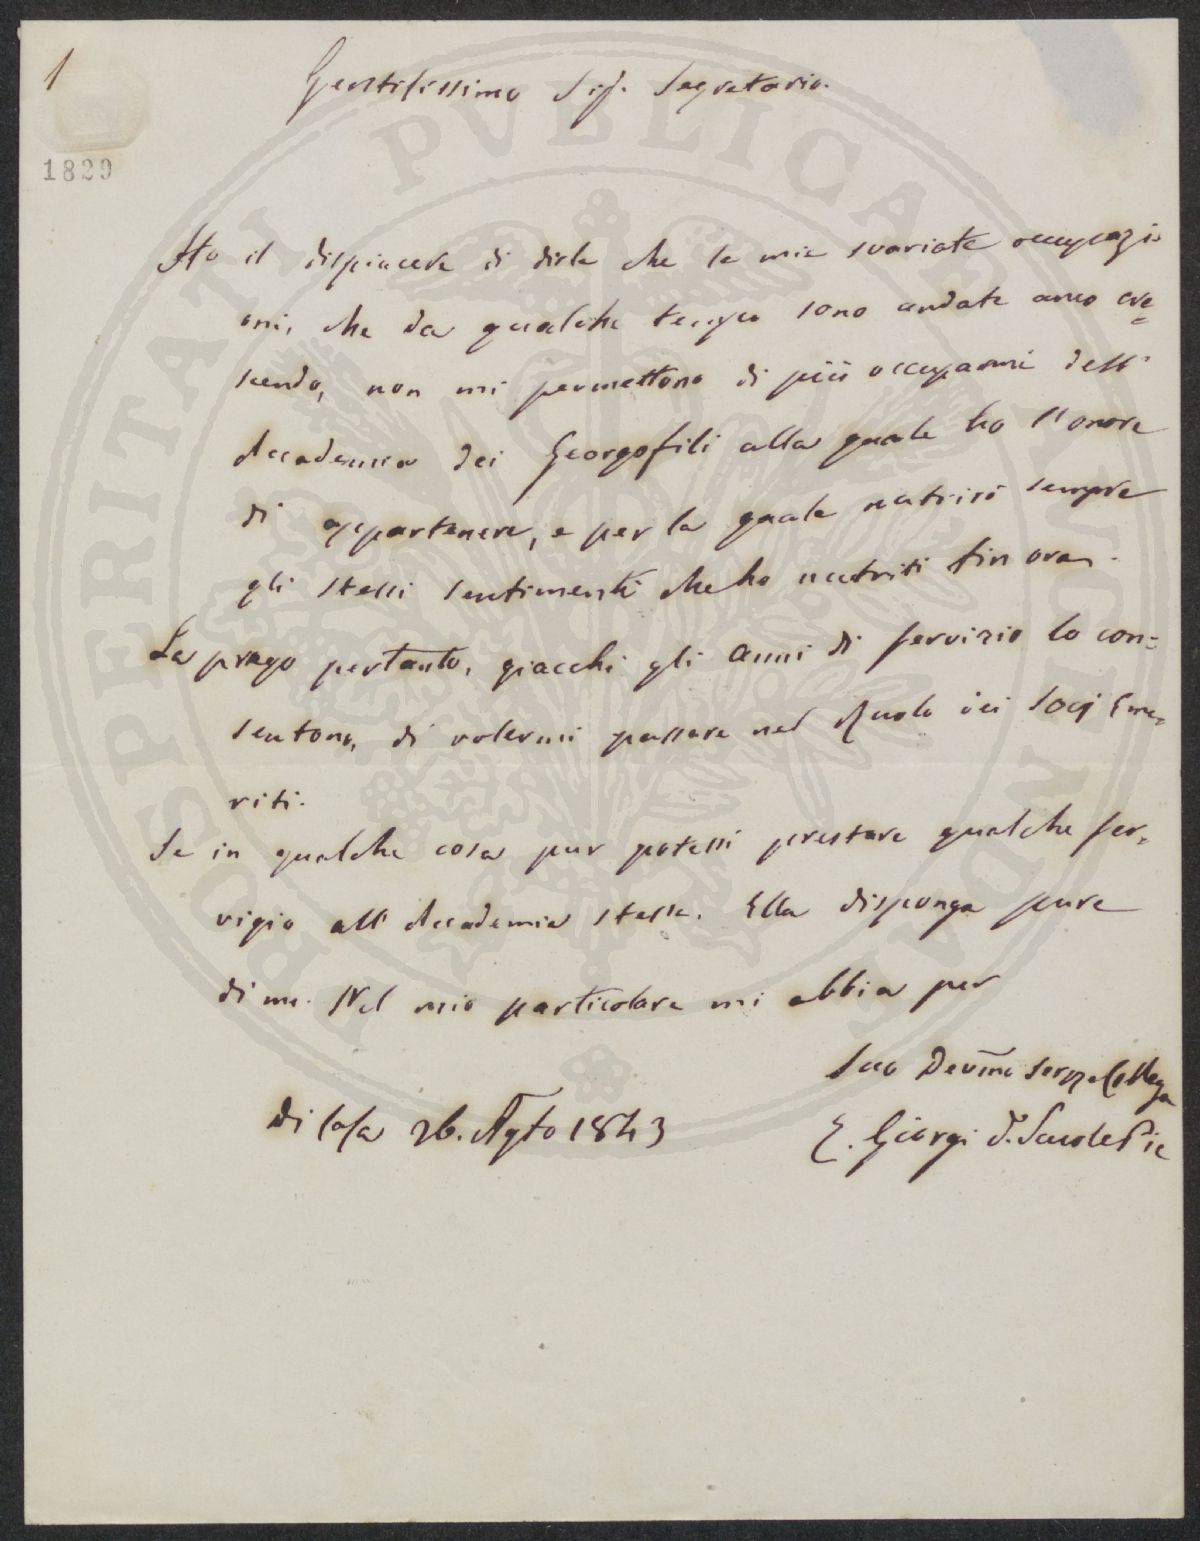 1
1829
Gentilissimo Sig. Segretario.
Ho il dispiacere di dirle che le mie svariate occupazi
oni, che da qualche tempo sono andate anco cre=
scendo, non mi permettono di più occuparmi dell'
Accademia dei Georgofili alla quale ho l'onore
di appartenere, e per la quale nutrirò sempre
gli stessi sentimenti che ho nutriti fin ora.
La prego pertanto, giacchi gli anni di servizio lo con=
sentono, di volermi passare nel Ruolo dei Socj Eme=
riti.
Se in qualche cosa pur potessi prestare qualche ser=
vigio all'Accademia stessa. Ella disponga pure
di me. Nel mio particolare mi abbia per
Suo Devmo Serv e Collega
Di Casa 26. Agto 1843
E. Giorgi d. Scuole Pie
PROSPERITATI PVBLICAE AVGENDAE